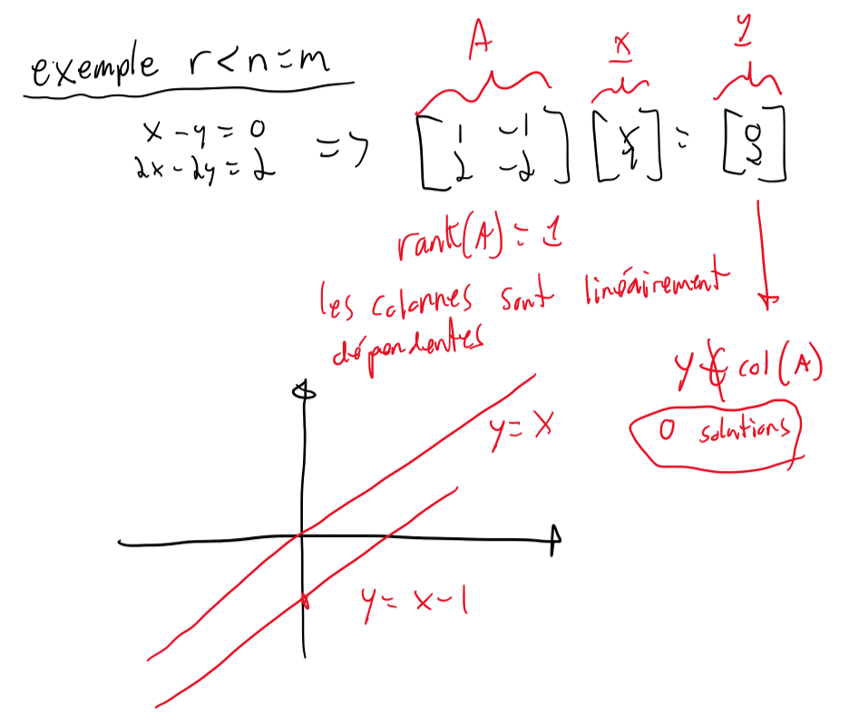 A x y
exemple r<n=m
x-y=0 => [1 -1; 2 -2] [x; y] = [0; 2]
2x-2y=2
rank(A)=1
les colonnes sont linéairement
dépendentes
y∉col(A)
0 solutions
y=x
y=x-1